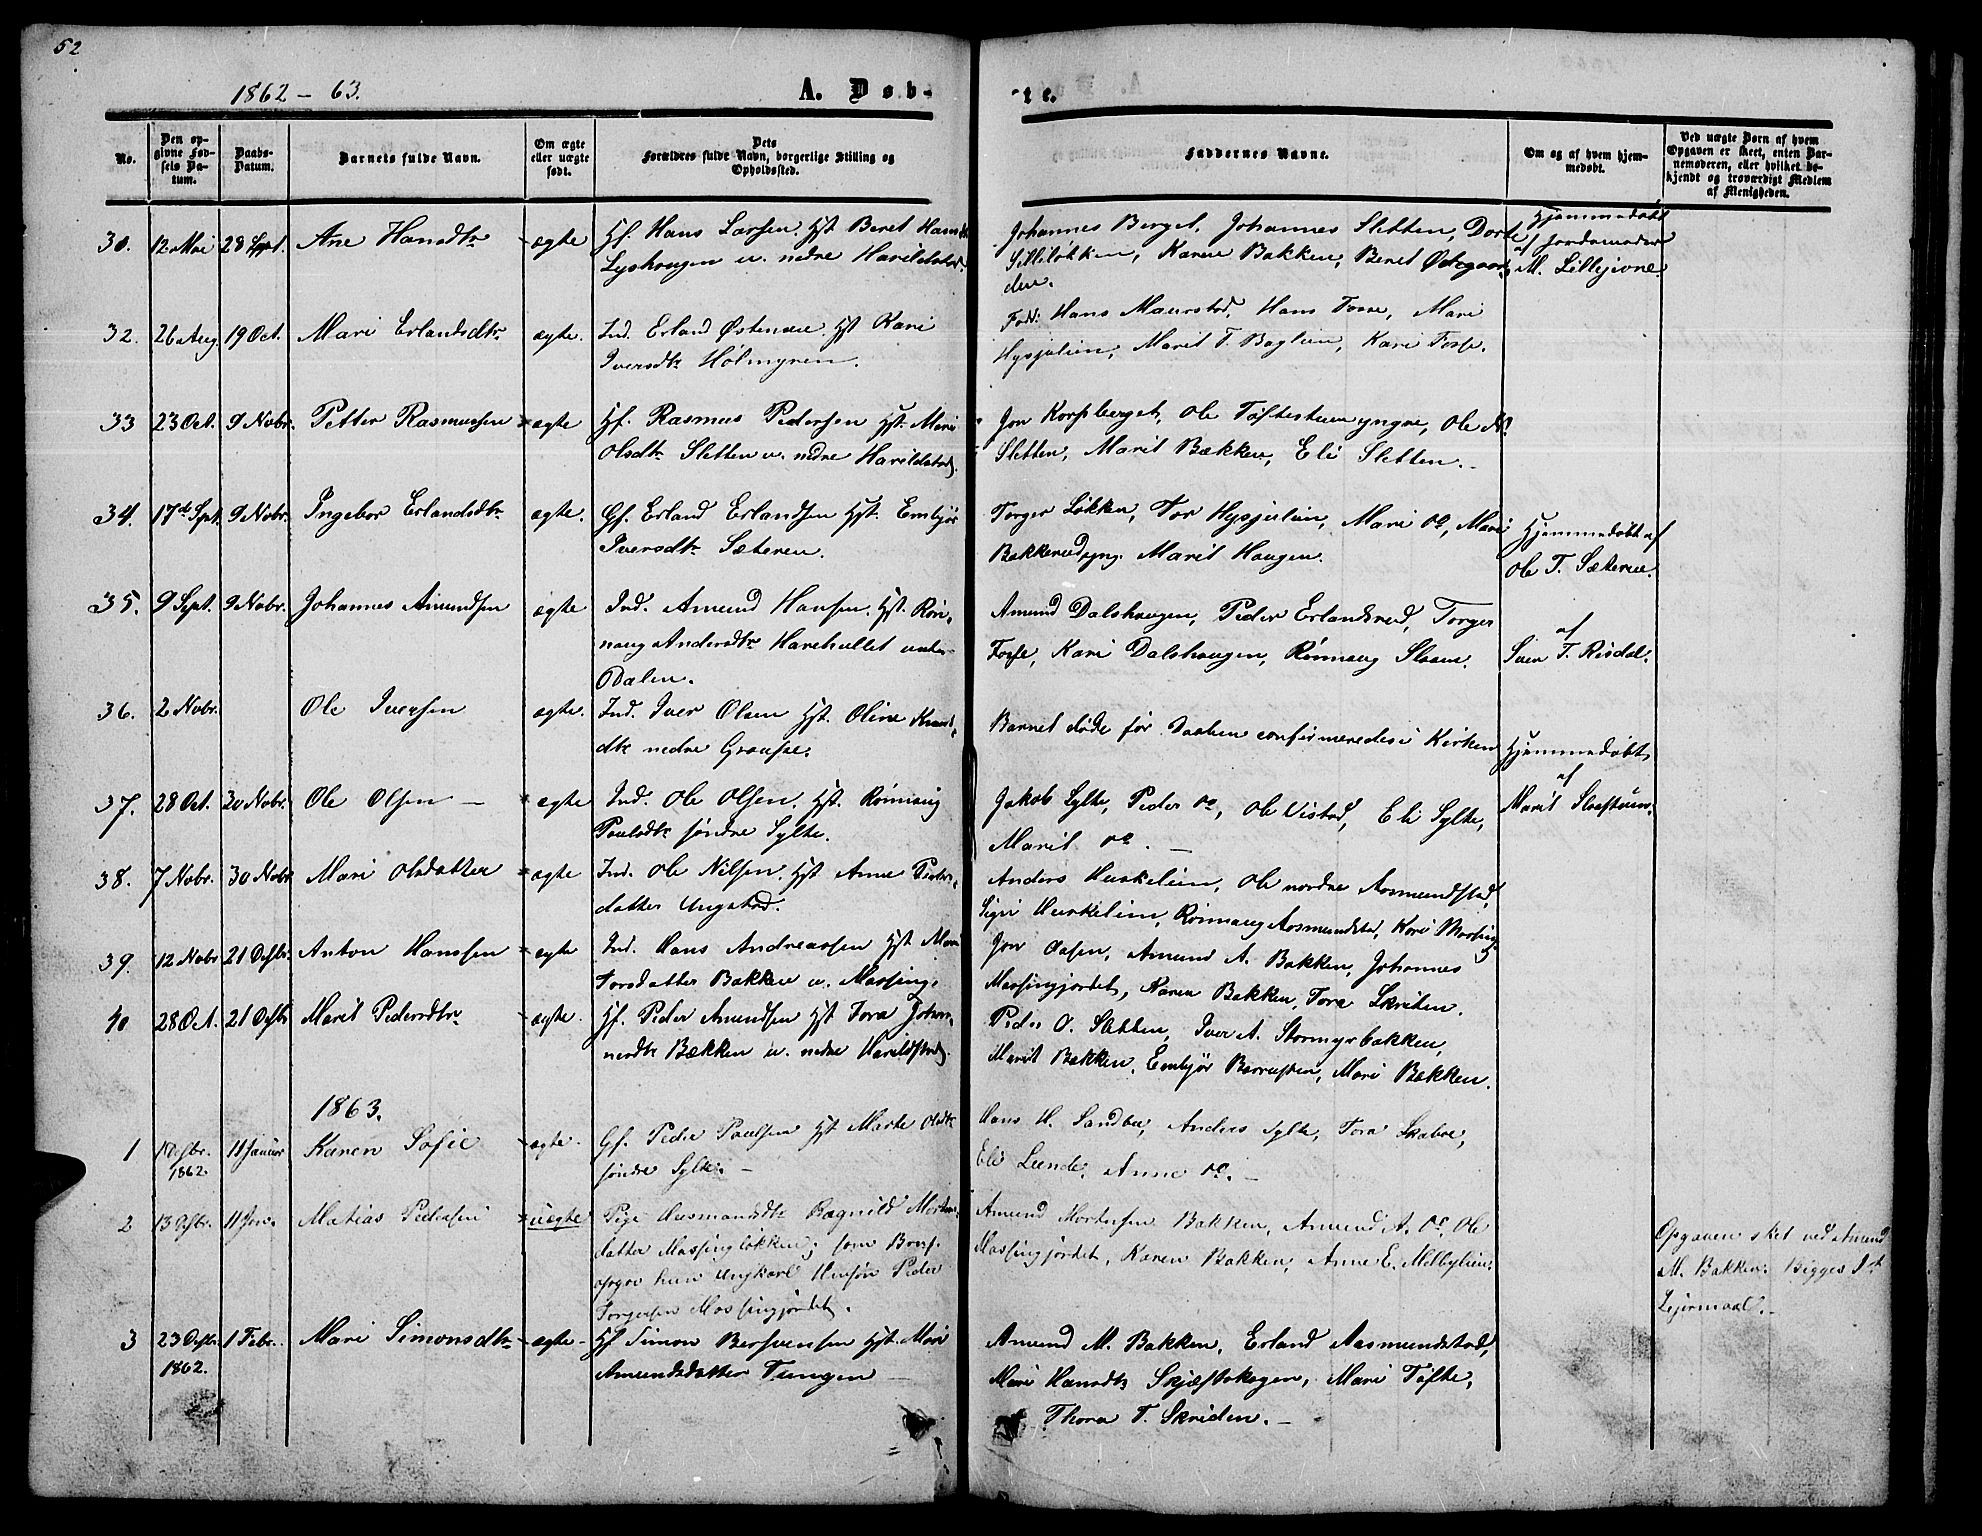 52
1862 - 63.
A. Døb-
te.
No.
Den op-
givne Fød-
sels Da-
tum.
Daabs-
Datum.
Barnets fulde Navn.
Om ægte
eller uægte
født.
Dets
Forældres fulde Navn, borgerlige Stilling og
Opholdssted.
Faddernes Navne.
Om og af hvem hjem-
medøbt.
Ved uægte Børn af hvem
Opgaven er skeet, enten Bar-
nemoderen, eller hvilket be-
kjendt og troværdigt Medlem
af Menigheden.
30. 12 Mai 28 Sept. Ane Hansdtr ægte Hf. Hans Larsen, Hst Beret Hansdtr
u. nedre Harildstad.
Johannes Berget, Johannes Sletten, Dorte
Silliløkken, Karen Bakken, Beret Ødegaar-
den.
Hjemmedøbt
af Jordemoder
M. Lillejevne
32. 26 Aug. 19 Oct. Mari Erlandsdtr ægte. Ind. Erland Østensen, Hst Kari
Iversdtr Holmyren.
Fad: Hans Maurstad, Hans Fosse, Mari
Hysjulien, Marit T. Baglien, Kari Fosse.
33 23 Oct. 9 Novbr. Petter Rasmussen ægte Hf. Rasmus Pedersen Hst. Mari
Olsdtr Sletten u. nedre Harildstad.
Jon Korpberget, Ole Tøftesteen yngre, Ole
Sletten, Marit Bækken, Eli Sletten.
34. 17de Sept. 9 Novbr. Ingebor Erlandsdtr ægte. Gf. Erland Erlandsen Hst. Embjør
Iversdtr Sæteren.
Torger Løkken, Tor Hysjulien, Mari do, Mari
Bakkerud yng. Marit Haugen.
Hjemmedøbt af
Ole T. Sæteren.
35. 9 Sept. 9 Novbr. Johannes Amundsen ægte Ind. Amund Hansen, Hst. Røn-
naug Andersdtr Harehullet under
Dalen.
Amund Dalshaugen, Peder Erlandsrud, Torger
Fosse, Kari Dalshaugen, Rønnaug Slaaen.
af
Sven T. Risdal.
36. 2 Novbr. Ole Iversen ægte. Ind. Iver Olsen Hst. Oline Knuds-
dtr nedre Graupe.
Barnet døde før Daaben confirmeredes i Kirken
Hjemmedøbt
af
Marit Slaastuen
37. 28 Oct. 30 Novbr. Ole Olsen - ægte Ind. Ole Olsen. Hst. Rønnaug
Paulsdtr søndre Sylte.
Jakob Sylte, Peder do, Ole Vistad, Eli Sylte,
Marit do. -
38. 7 Novbr. 30 Novbr Mari Olsdatter ægte Ind. Ole Nilsen. Hst Anne Peders-
datter Ungstad.
Anders Huskelien, Ole nordre Aasmundstad,
Sigri Huskelien, Rønnaug Aasmundstad, Kari Massing
39. 12 Novbr 21 Desbr. Anton Hanssen ægte Ind. Hans Andreassen Hst Mari
Torsdatter Bakken u. Massing.
Jon Aasen, Amund A. Bakken, Johannes
Massingjordet, Karen Bakken, Tora Skriten.
40 28 Oct. 21 Desbr Marit Pedersdtr ægte. Hf. Peder Amundsen Hst Tora Johan-
nesdtr Bækken u. nedre Harildstad.
Peder O. Sletten, Iver A. Stormyrbakken,
Marit Bækken, Embjør Barrusten, Mari Bækken.
1863.
1 1 Desbr.
1862. 11 Januar Karen Sofie ægte. Gf. Peder Paulsen Hst Marte Olsdtr
søndre Sylte. -
Hans H. Sandbu, Anders Sylte, Tora Skaboe,
Eli Lunde, Anne do. -
2 13 Desbr. 11 Jan. Matias Pedersen uægte Pige Husmandsdtr Ragnild Mortens-
datter Massingløkken; som Barnf.
opgav hun Ungkarl Huusøn Peder
Torgersen Massingjordet.
Amund Mortensen Bakken, Amund A. do, Ole
Massingjordet, Karen Bakken, Anne E. Melbylien.
Opgaven sket ved Amund
M. Bakken. Begges 1st
Lejermaal. -
3 23 Desbr.
1862. 1 Febr. Mari Simonsdtr ægte - Hf Simon Bersvensen Hst. Mari
Amundsdatter Tungen
Amund M. Bakken, Erland Aasmundstad,
Mari Hansdtr Skjæftskogen, Mari Tøfte,
Thora T. Skriden. -